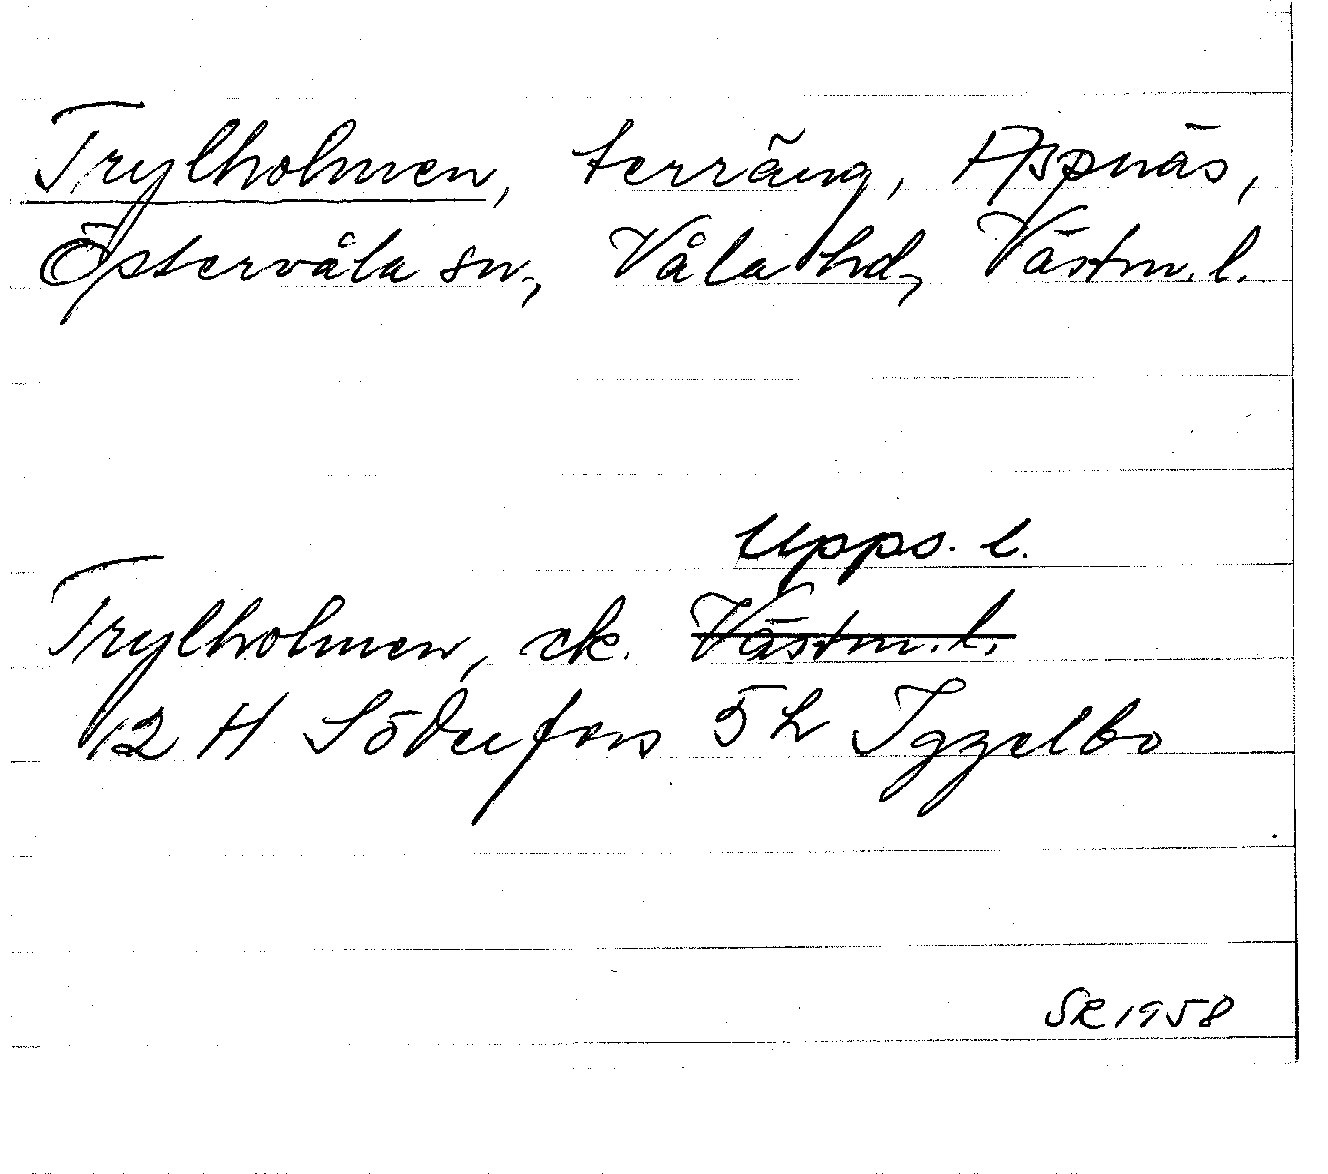 Trylholmen, terräng, Aspnäs,
Östervåla sn, Våla hd, Västm. l.
Upps. l.
Trylholmen, ek. Västm. l.
12 H Söderfors 5 h Iggelbo
SR 1958